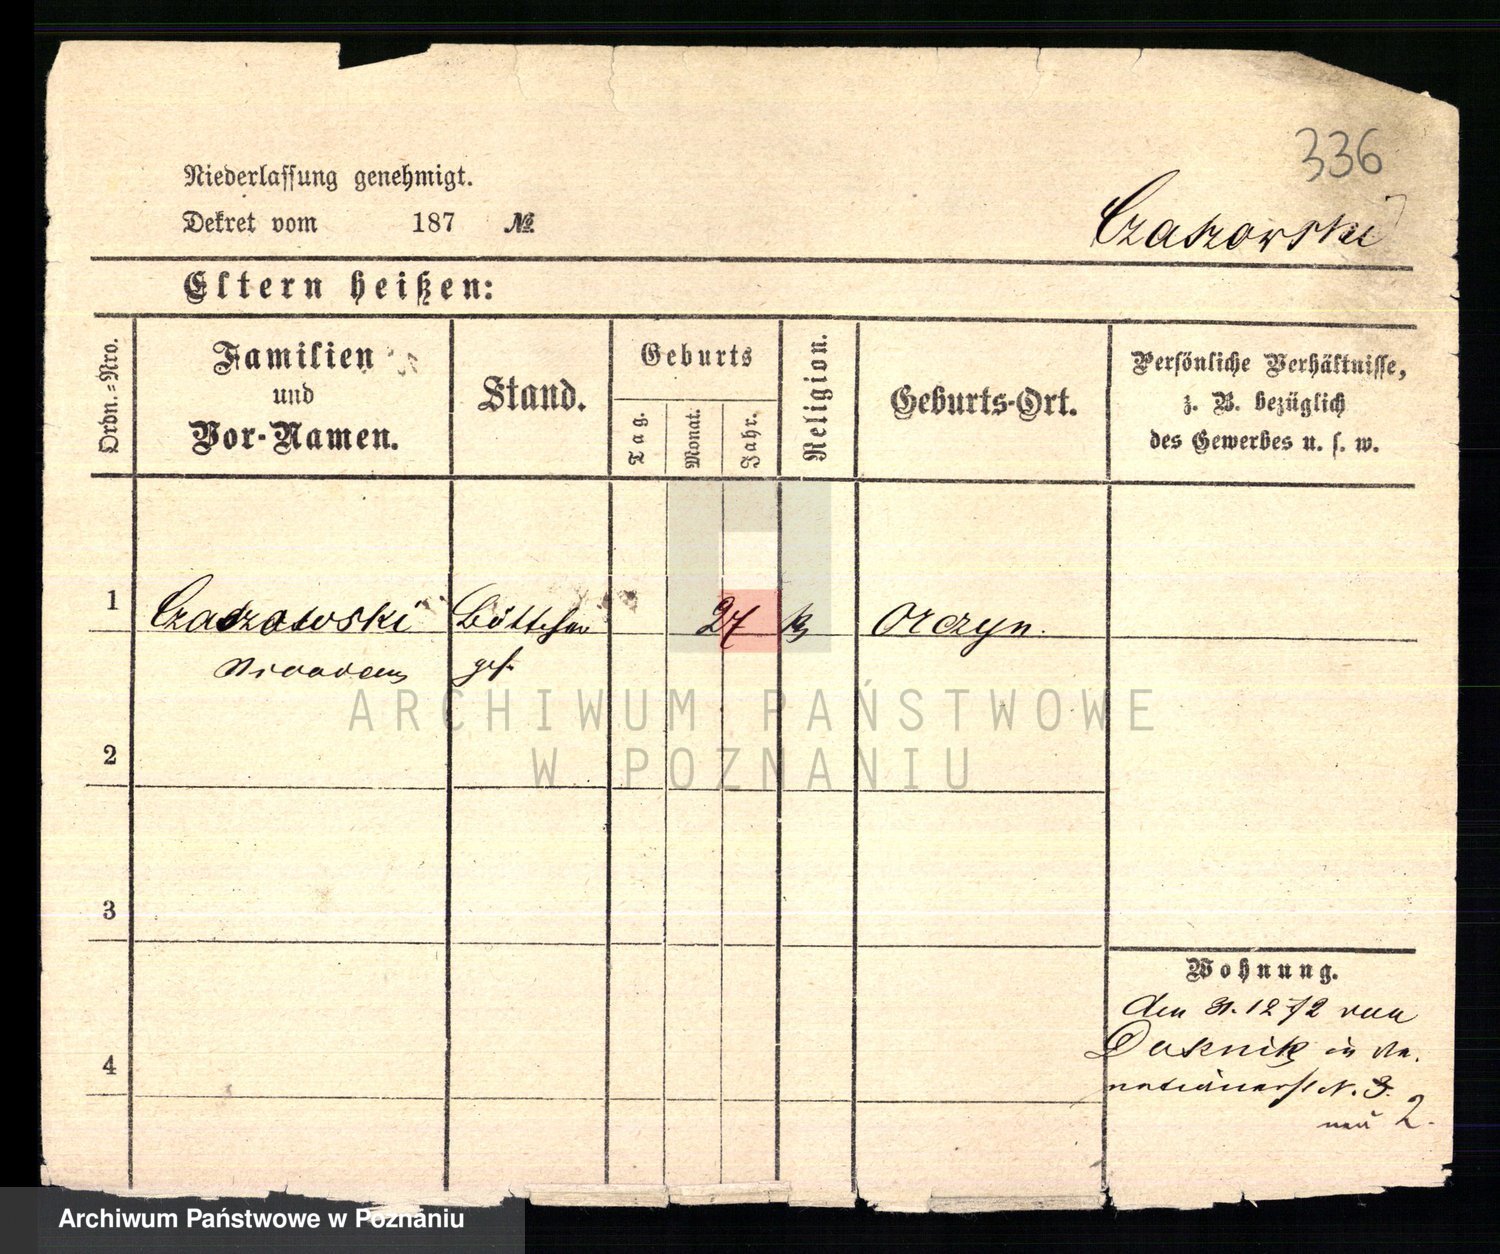 336
Niederlassung genehmigt.
Dekret vom 187 №
Czaszowski
Eltern heißen:
Ordn.=Nro.
Familien
und
Vor-Namen.
Stand.
Geburts
Tag.
Monat.
Jahr.
Religion.
Geburts-Ort.
Persönliche Verhältnisse,
z. B. bezüglich
des Gewerbes u. s. w.
1
Czaszowski Böttcher 27 k Orczyn.
ges.
ARCHIWUM PAŃSTWOWE
W POZNANIU
2
3
Wohnung.
den 31.12 72 von
in
N. 3.
neu 2.
4
Archiwum Państwowe w Poznaniu